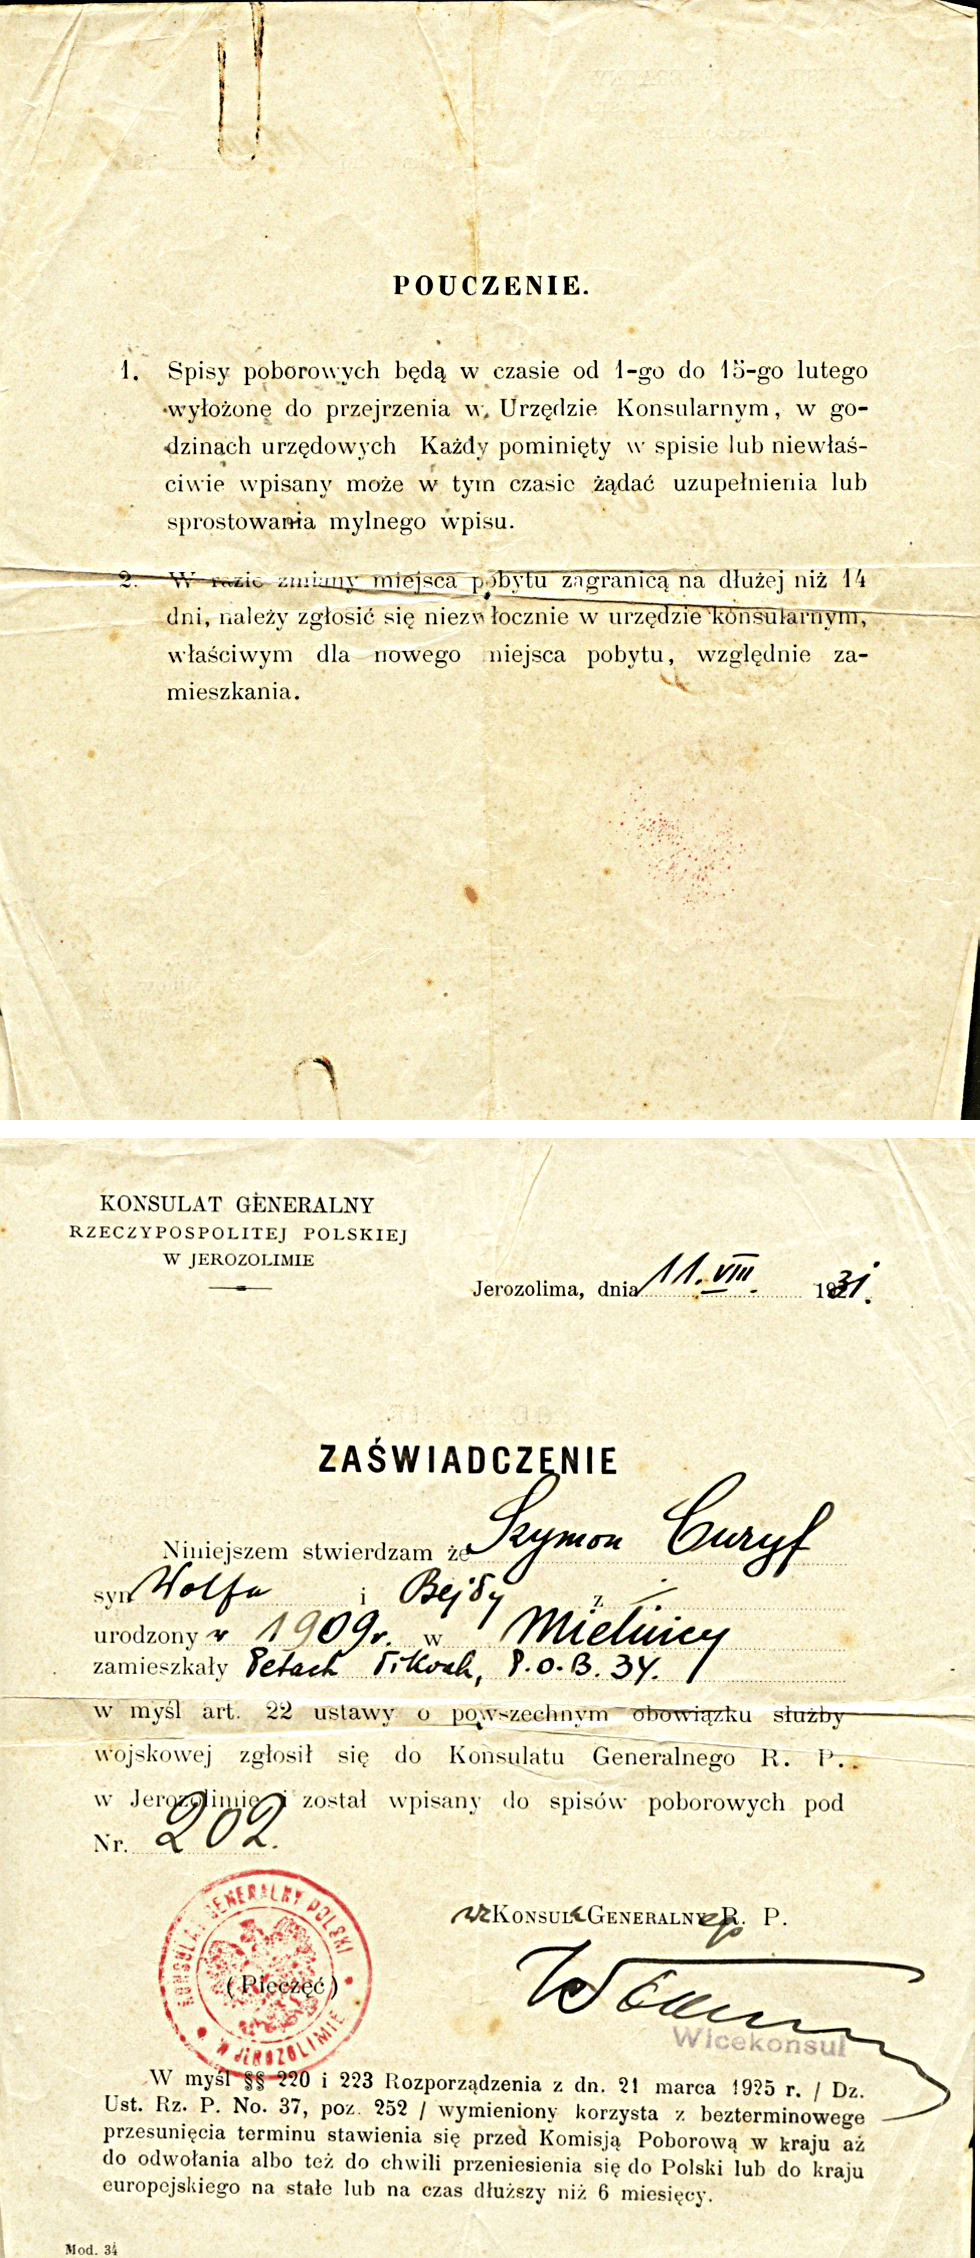 POUCZENIE.
1. Spisy poborowych będą w czasie od 1-go do 15-go lutego
wyłożonę do przejrzenia w Urzędzie Konsularnym, w go-
dzinach urzędowych Każdy pominięty w spisie lub niewłaś-
ciwie wpisany może w tym czasie żądać uzupełnienia lub
sprostowania mylnego wpisu.
2. W razie zmiany miejsca pobytu zagranicą na dłużej niż 14
dni, należy zgłosić się niezwłocznie w urzędzie konsularnym,
właściwym dla nowego miejsca pobytu, względnie za-
mieszkania.
KONSULAT GENERALNY
RZECZYPOSPOLITEJ POLSKIEJ
W JEROZOLIMIE
Jerozolima, dnia 11. VIII. 1931.
ZAŚWIADCZENIE
Niniejszem stwierdzam że Szymon Curyf
syn Wolfa i Bejły z
urodzony w 1909 r. w Mielnicy
zamieszkały Petach Tikvah, P.O.B. 34.
w myśl art. 22 ustawy o powszechnym obowiązku służby
wojskowej zgłosił się do Konsulatu Generalnego R. P.
w Jerozolimie i został wpisany do spisów poborowych pod
Nr. 202.
wz KONSULA GENERALNEGO R. P.
KONSULAT GENERALNY POLSKI
W JEROZOLIMIE
(Pieczęć)
Wicekonsul
W myśl §§ 220 i 223 Rozporządzenia z dn. 21 marca 1925 r. / Dz.
Ust. Rz. P. No. 37, poz. 252 / wymieniony korzysta z bezterminowege
przesunięcia terminu stawienia się przed Komisją Poborową w kraju aż
do odwołania albo też do chwili przeniesienia się do Polski lub do kraju
europejskiego na stałe lub na czas dłuższy niż 6 miesięcy.
Mod. 34